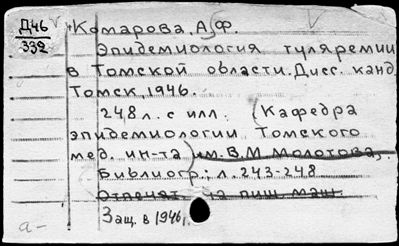 Д46
332
Комарова, А.Ф.
Эпидемиология туляремии
в Томской области. Дисс. канд.
Томск, 1946.
248 л. с илл. (Кафедра
эпидемиологии Томского
мед. ин-та им. В.М Молотова).
Библиогр.: л. 243-248
Отпечат. на пиш. маш.
Защ. в 1946г.
а-